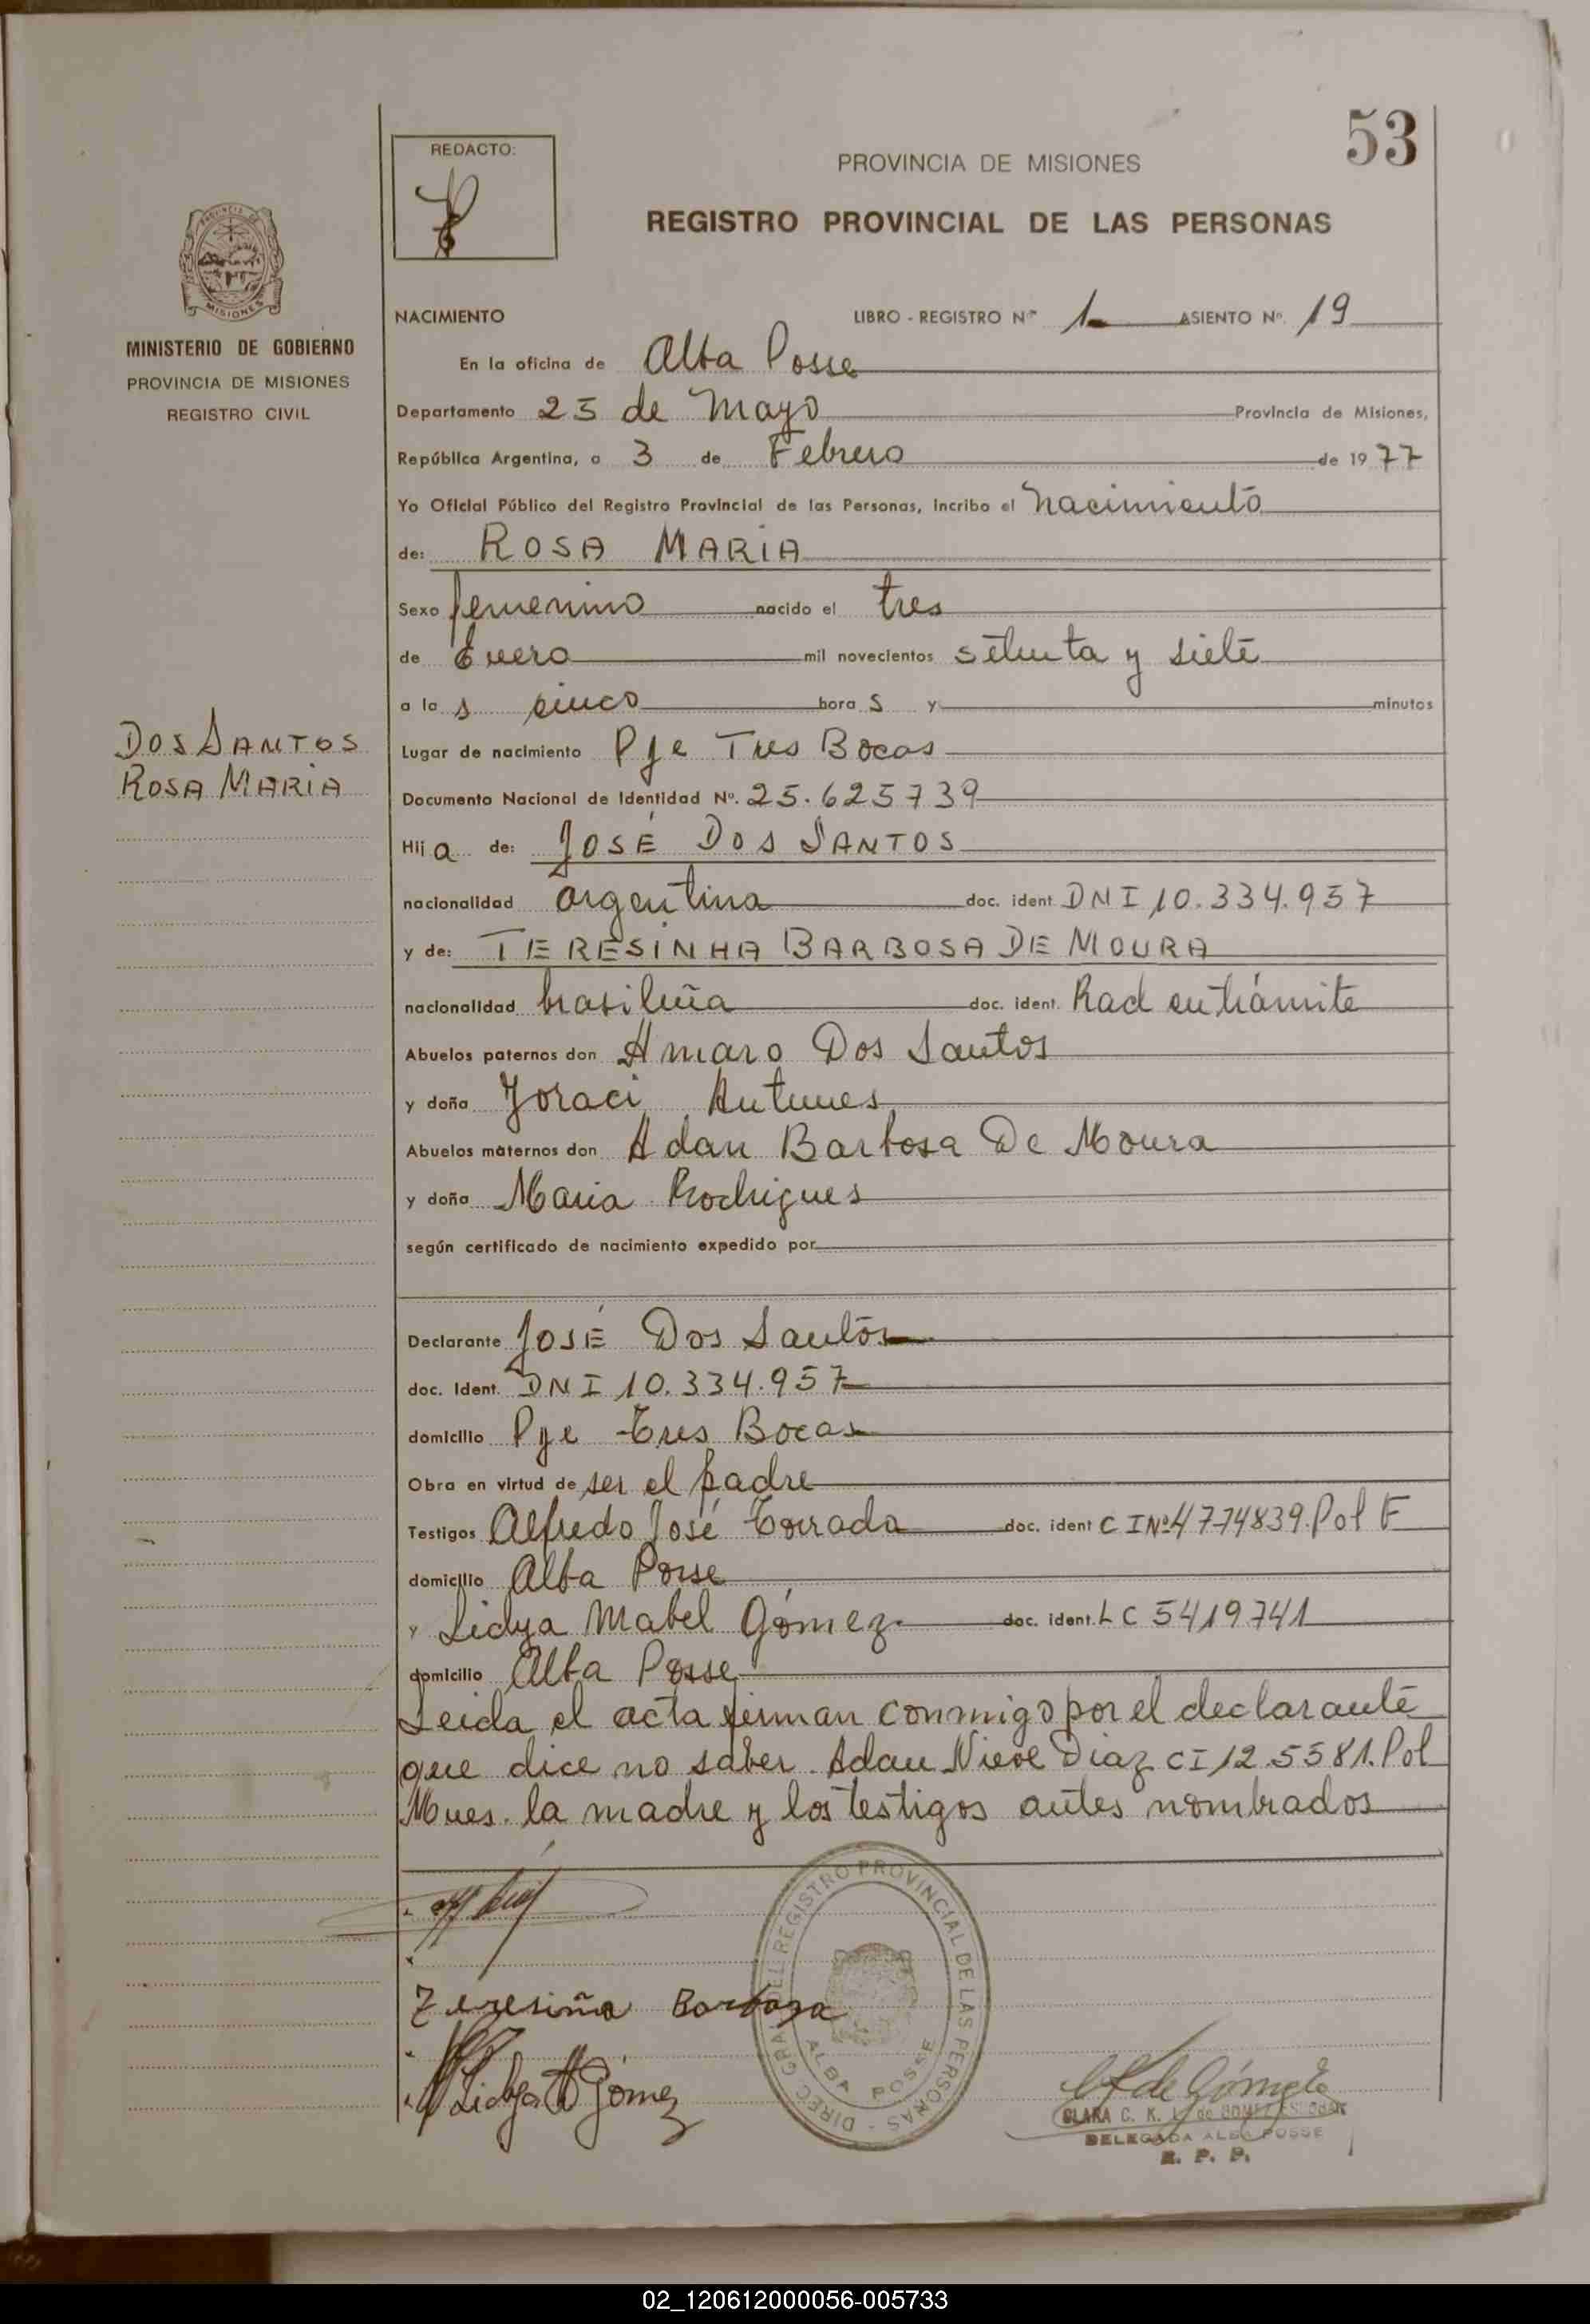 53
REDACTO:
PROVINCIA DE MISIONES
REGISTRO PROVINCIAL DE LAS PERSONAS
PROVINCIA DE
MISIONES
MINISTERIO DE GOBIERNO
PROVINCIA DE MISIONES
REGISTRO CIVIL
DOS SANTOS
ROSA MARIA
NACIMIENTO LIBRO - REGISTRO Nº 1 ASIENTO Nº. 19
En la oficina de Alba Posse
Departamento 25 de Mayo Provincia de Misiones,
República Argentina, a 3 de Febrero de 1977
Yo Oficial Público del Registro Provincial de las Personas, incribo el nacimiento
de: ROSA MARIA
Sexo femenino nacido el tres
de Enero mil novecientos setenta y siete
a las cinco horas y minutos
Lugar de nacimiento Pje Tres Bocas
Documento Nacional de Identidad Nº. 25.625739
Hija de: JOSÉ DOS SANTOS
nacionalidad argentina doc. ident. DNI 10.334.957
y de: TERESINHA BARBOSA DE MOURA
nacionalidad brasileña doc. ident. Rad en trámite
Abuelos paternos don Amaro Dos Santos
y doña Joraci Antunes
Abuelos maternos don Adan Barbosa De Moura
y doña Maria Rodrigues
según certificado de nacimiento expedido por
Declarante JOSÉ Dos Santos
doc. Ident. DNI 10.334.957
domicilio Pje Tres Bocas
Obra en virtud de ser el padre
Testigos Alfredo José Torrada doc. ident C I Nº 4774839. Pol F
domicilio Alba Posse
y Lidya Mabel Gómez doc. ident. L C 5419741
domicilio Alba Posse
Leida el acta firman conmigo por el declarante
que dice no saber. Adan Nieve Diaz CI 12.5581. Pol
Mnes. la madre y los testigos antes nombrados
Teresiña Barboza
Lidya M Gómez
DIREC GRAL DEL REGISTRO PROVINCIAL DE LAS PERSONAS
ALBA POSSE
CLARA C. K. de GOMEZ
DELEGADA ALBA POSSE
R. P. P.
02_120612000056-005733